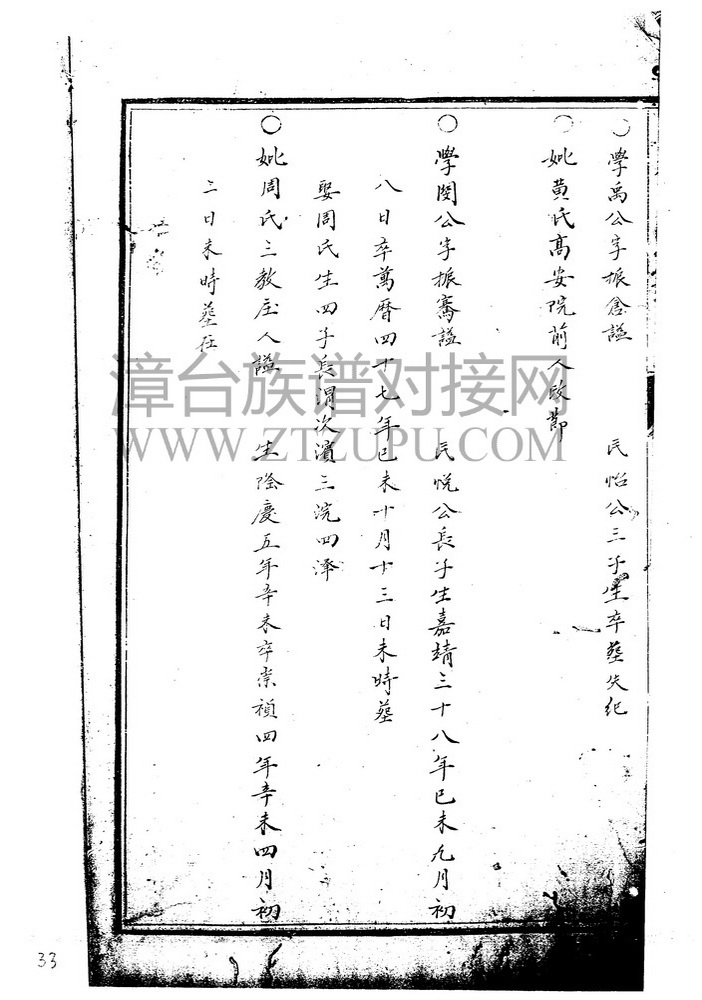 ○學禹公字振畲謚 民怡公三子生卒塟失紀
○妣黄氏髙安院前人改節
○學閔公字振騫謚 民悅公長子生嘉靖三十八年已未九月初
八日卒萬曆四十七年已未十月十三日未時塟
娶周氏生四子長渭次濱三浣四澤
○妣周氏三教庄人謚 生隆慶五年辛未卒崇禎四年辛未四月初
三日未時塟在
漳台族谱对接网
WWW.ZTZUPU.COM
33